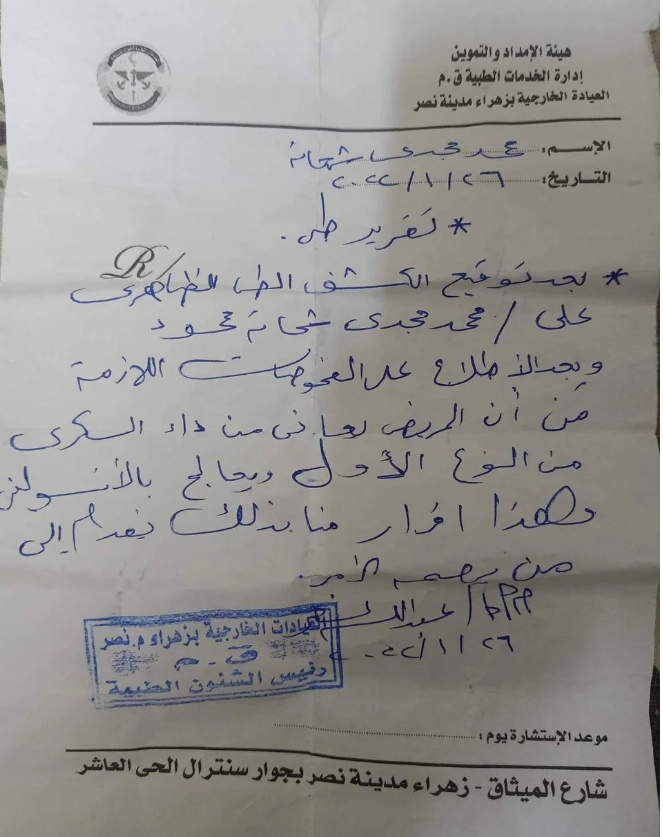 هيئة الإمداد والتموين
إدارة الخدمات الطبية ق.م
العيادة الخارجية بزهراء مدينة نصر
الإسم: محمد مجدى شحاتة
التاريخ: ٢٠٢٢/١/٢٦
* تقرير طبى.
R/
* بعد توقيع الكشف الطبى الظاهرى
على / محمد مجدى شحاتة محمود
وبعد الأطلاع على الفحوصات اللازمة
أن المريض يعانى من داء السكرى
من النوع الأول ويعالج بالأنسولين
وهذا اقرار منا بذلك يقدم إلى
من يهمه الأمر.
٢٠٢٢/١/٢٦
العيادات الخارجية بزهراء م.نصر
ق.م
رئيس الشئون الطبية
موعد الإستشارة يوم:
شارع الميثاق - زهراء مدينة نصر بجوار سنترال الحى العاشر